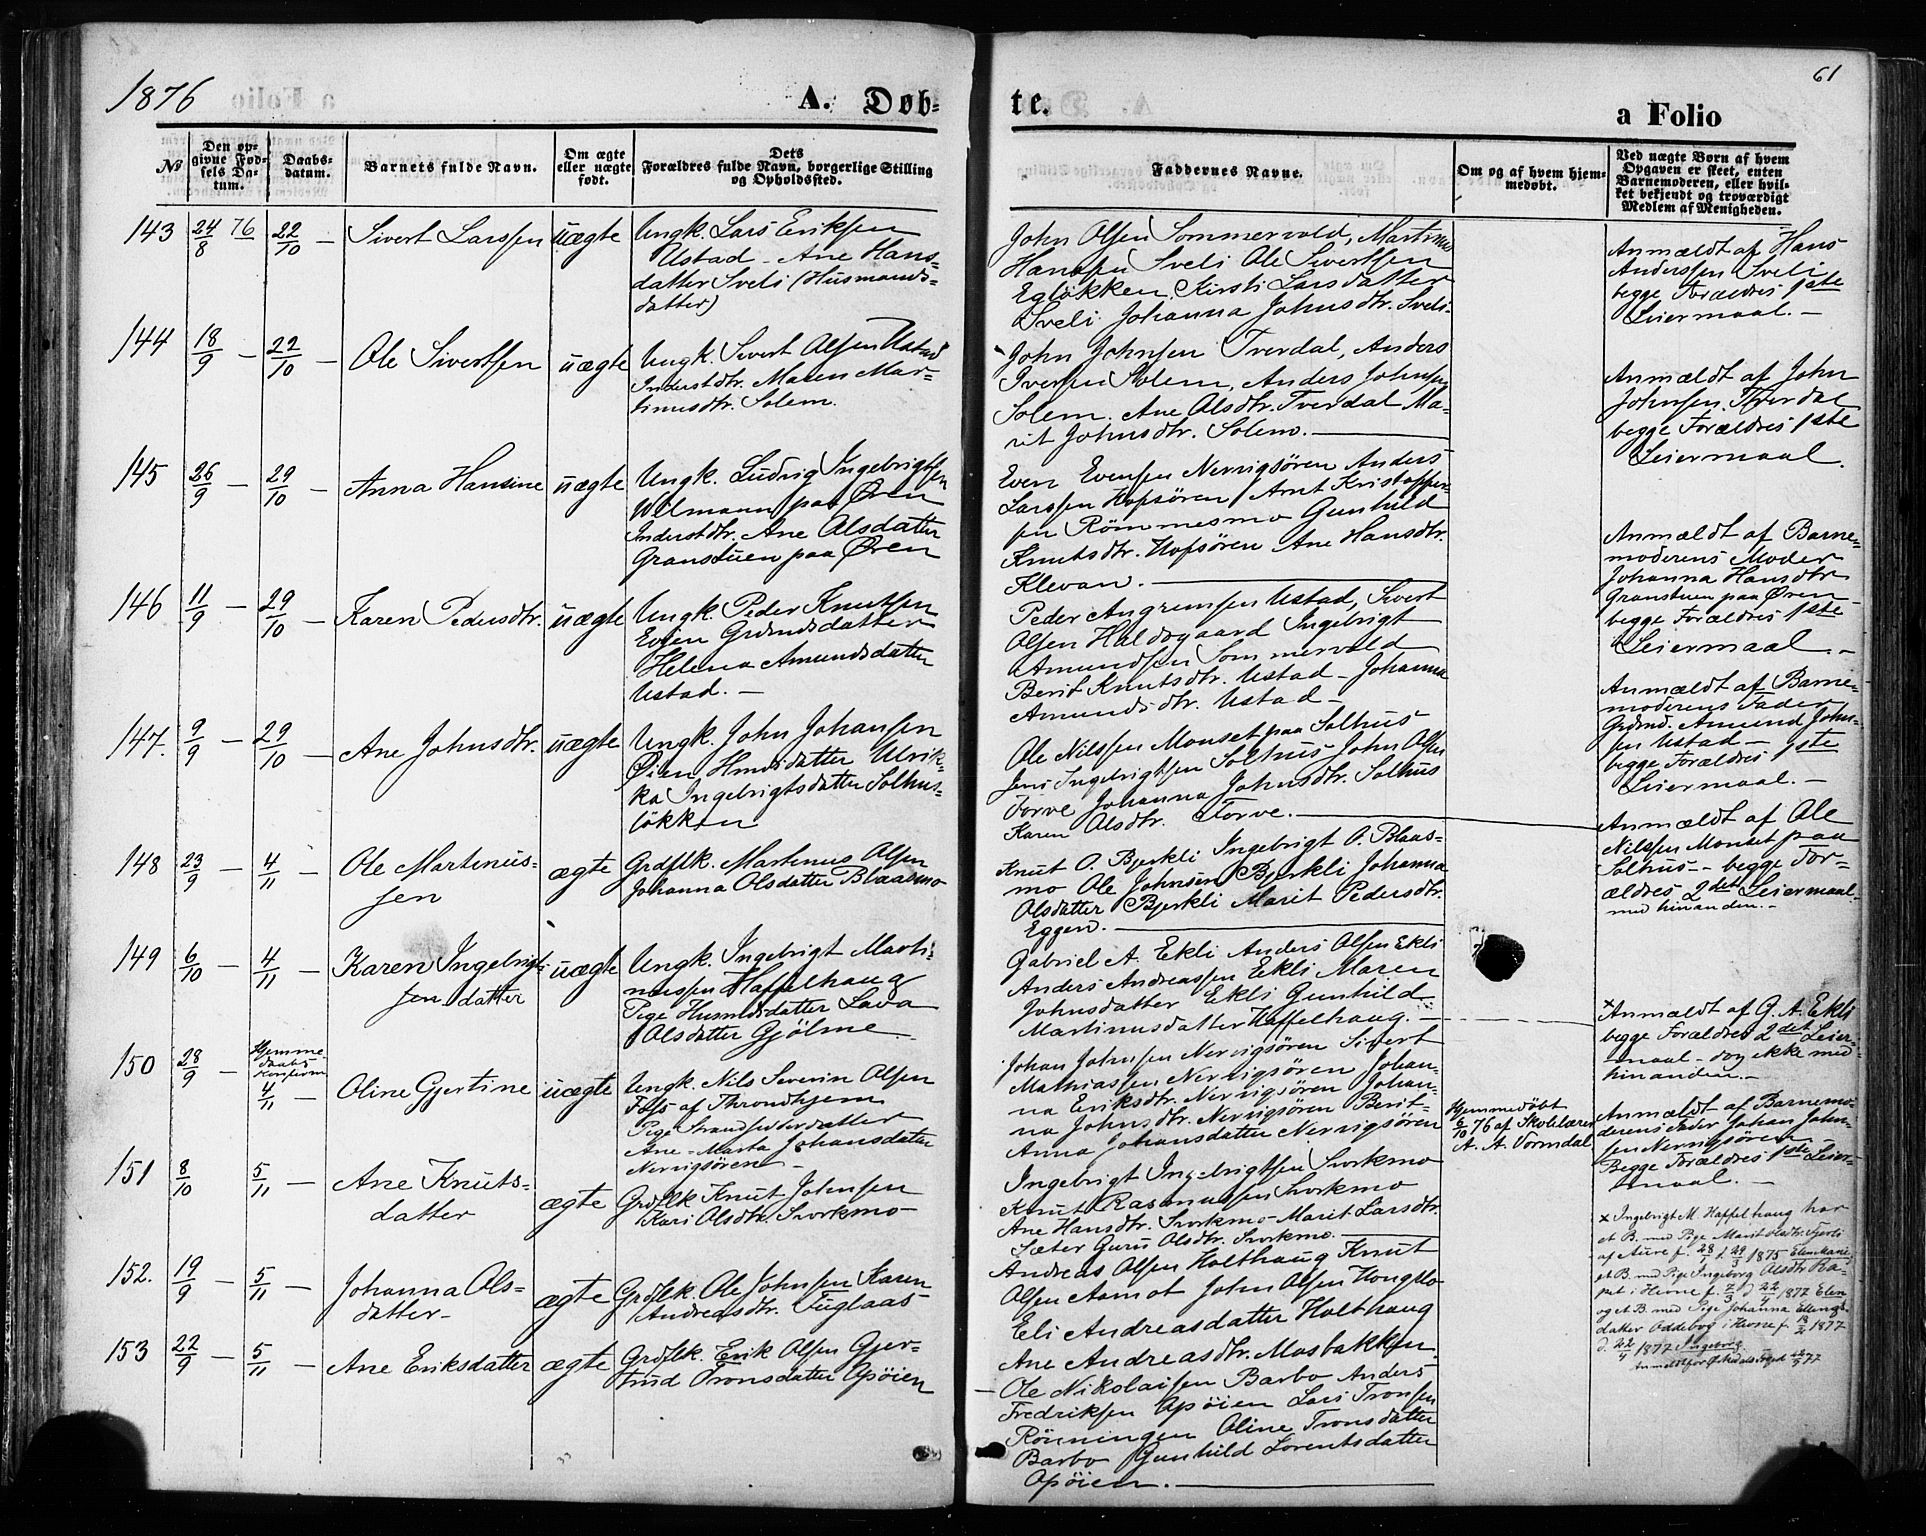 1876
A. Døb-
te.
61
a Folio
№
Den op-
givne Fød-
sels Da-
tum.
Daabs-
datum.
Barnets fulde Navn.
Om ægte
eller uægte
født.
Dets
Forældres fulde Navn, borgerlige Stilling
og Opholdssted.
Faddernes Navne.
Om og af hvem hjem-
medøbt.
Ved uægte Børn af hvem
Opgaven er skeet, enten
Barnemoderen, eller hvil-
ket bekjendt og troværdigt
Medlem af Menigheden.
143 24/8 76 22/10 — Sivert Larssen uægte
Ungk. Lars Eriksen
Ustad - Ane Hans-
datter Sveli (Husmands-
datter)
John Olsen Sommervold, Martinus
Hansen Sveli Ole Sivertsen
Egløkken, Kirsti Larsdatter
Sveli Johanna Johnsdtr. Sveli.
Anmældt af Hans
Anderssen Sveli
begge Forældres 1ste
Leiermaal. —
144 18/9 — 22/10 — Ole Sivertsen uægte
Ungk. Sivert Olsen Ustad
Inderstdtr. Maren Mar-
tinusdtr. Solem.
John Johnsen Tverdal, Anders
Iversen Solem, Anders Johnsen
Solem. Ane Olsdtr. Tverdal Ma-
rit Johnsdtr. Solem. —
Anmældt af John
Johnsen Tverdal
begge Forældres 1ste
Leiermaal.
145 26/9 — 29/10 — Anna Hansine uægte
Ungk. Ludvig Ingebrigtsen
Wilmann paa Øren
Inderstdtr. Ane Olsdatter
Granstuen paa Øren
Even Evensen Nervigsören Anders
Larssen Hofsören Arnt Kristoffer-
sen Römmesmo Gunhild
Knutsdtr. Hofsören Ane Hansdtr.
Klevan. —
Anmældt af Barne-
moderens Moder
Johanna Hansdtr
Granstuen paa Øren
begge Forældres 1ste
Leiermaal. -
146 11/9 — 29/10 — Karen Pedersdtr. uægte
Ungk. Peder Knutsen
Evjen Grdmdsdatter
Helena Amundsdatter
Ustad. —
Peder Angrimsen Ustad, Sivert
Olsen Haldogaard Ingebrigt
Amundsen Sommervold
Berit Knutsdtr. Ustad - Johanna
Amundsdtr. Ustad -
Anmældt af Barne-
moderens Fader
Grdmd. Amund John-
sen Ustad —
begge Forældres 1ste
Leiermaal. —
147. 9/9 — 29/10 — Ane Johnsdtr. uægte
Ungk. John Johansen
Øien Hmdsdatter Ulrik-
ka Ingebrigtsdatter Solhus-
løkken
Ole Nilssen Monset paa Solhus
Jens Ingebrigtsen Solhus John Olsen
Forve Johanna Johnsdtr. Solhus
Karen Olsdtr. Forve. —
Anmældt af Ole
Nilssen Monset paa
Solhus - begge For-
ældres 2det Leiermaal
med hinanden. -
148 23/9 — 4/11 — Ole Martinus-
sen ægte
Grdflk. Martinus Olsen
Johanna Olsdatter Blaasmo
Knut O. Bjerkli Ingebrigt O. Blaas-
mo Ole Johnsen Bjerkli Johanna
Olsdatter Bjerkli Marit Pedersdtr.
Eggen. —
149 6/10 — 4/11 — Karen Ingebrigt-
sendatter uægte
Ungk. Ingebrigt Marti-
nussen Haffelhaug
Pige Husmdsdatter Lava
Olsdatter Gjölme
Gabriel A. Ekli Anders Olsen Ekli
Anders Andreassen Ekli Maren
Johnsdatter Ekli Gunhild
Martinusdatter Haffelhaug.
× Anmældt af G. A. Ekli
begge Forældres 2det Leier-
maal - dog ikke med
hinanden. -
150 28/9 Hjemme-
daabs
Konfirm
4/11 — Oline Gjertine uægte
Ungk. Nils Severin Olsen
Foss af Throndhjem
Pige Strandsidderdatter
Ane-Marta Johansdatter
Nervigsören —
Johan Johnsen Nervigsören Sivert
Mathiassen Nervigsören Johan-
na Eriksdtr. Nervigsören Johan-
na Johnsdtr. Nervigsören Berit-
Anna Johansdatter Nervigsören
Hjemmedöbt
6/10 76 af Skolelærer
A. A. Vormdal
Anmældt af Barnemo-
derens Fader Johan John-
sen Nervigsören
Begge Forældres 1ste Leier-
maal. —
151 8/10 5/11 — Ane Knuts-
datter ægte
Grdflk Knut Johnsen
Kari Olsdtr. Svorkmo
Ingebrigt Ingebrigtsen Svorkmo
Knut Rasmussen Svorkmo
Ane Hansdtr. Svorkmo - Marit Larsdtr.
Sæter Guru Olsdtr. Svorkmo. —
× Ingebrigt M. Haffelhaug har
et B. med Pige Marit Olsdtr. Fjerli
af Aure f. 28/1 d. 29/3 1875 Elen Marie,
et B. med Pige Ingeborg Olsdtr. Ra-
pet i Hevne f. 7/3 d. 22/4 1877 Elen
og et B. med Pige Johanna Ellings-
datter Oddebog i Hevne f. 13/2 1877
d. 22/4 1877 Ingebrig.
152. 19/9 — 5/11 — Johanna Ols-
datter - ægte
Grdflk. Ole Johnsen Karen
Andreasdtr. Fuglaas
Andreas Olsen Holthaug Knut
Olsen Aamot John Olsen Kongslo
Eli Andreasdatter Holthaug
Ane Andreasdtr. Mosbakken.
153 22/9 — 5/11 — Ane Eriksdatter ægte
Grdflk. Erik Olsen Gjer-
trud Tronsdatter Opöien
— Ole Nikolaisen Barbo Anders
Fredriksen Opöien Lars Tronsen
Rönningen Oline Tronsdatter
Barbo Gunhild Lorentsdatter
Opöien. —